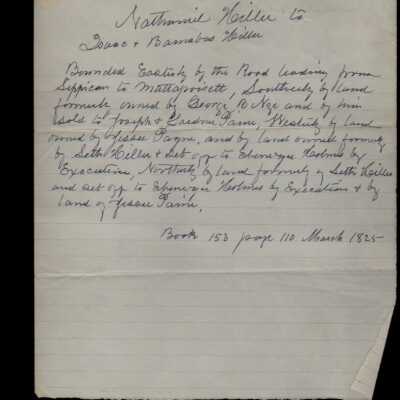 Nathaniel Hiller to
Isaac & Barnabas Hiller
Bounded Easterly by the Road leading from
Sippican to Mattapoisett, Southerly by land
formerly owned by George B Nye and by him
sold to Joseph & Gardner Paine, Westerly by land
owned by Jessee Payne, and by land owned formerly
by Seth Hiller & set off to Ebenezer Holmes by
Execution, Northerly by land formerly of Seth Hiller
and set off to Ebenezer Holmes by Execution & by
land of Jessee Paine.
Book 153 page 110 March 1825